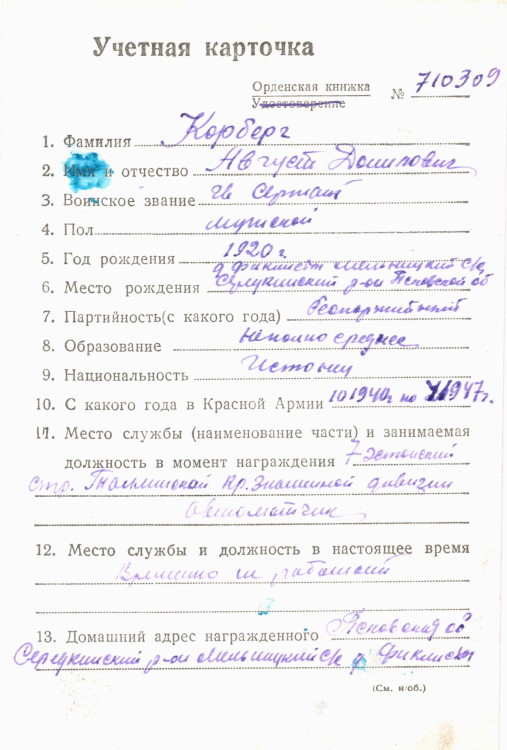 Учетная карточка
Орденская книжка
Удостоверение № 710309
1. Фамилия Корберг
2. Имя и отчество Август Данилович
3. Воинское звание гв Сержант
4. Пол мужской
5. Год рождения 1920 г.
д Фиклисты Мельницкий с/с
6. Место рождения р-он Псковской об
7. Партийность(с какого года)
8. Образование неполно среднее
9. Национальность
10. С какого года в Красной Армии 10 1940г по 1947г.
11. Место службы (наименование части) и занимаемая
должность в момент награждения 7 Эстонский
Кр. Знаменной дивизии
автоматчик
12. Место службы и должность в настоящее время
Временно не работает
13. Домашний адрес награжденного Псковская об
Середкинский р-он Мельницкий с/с д
(См. н/об.)